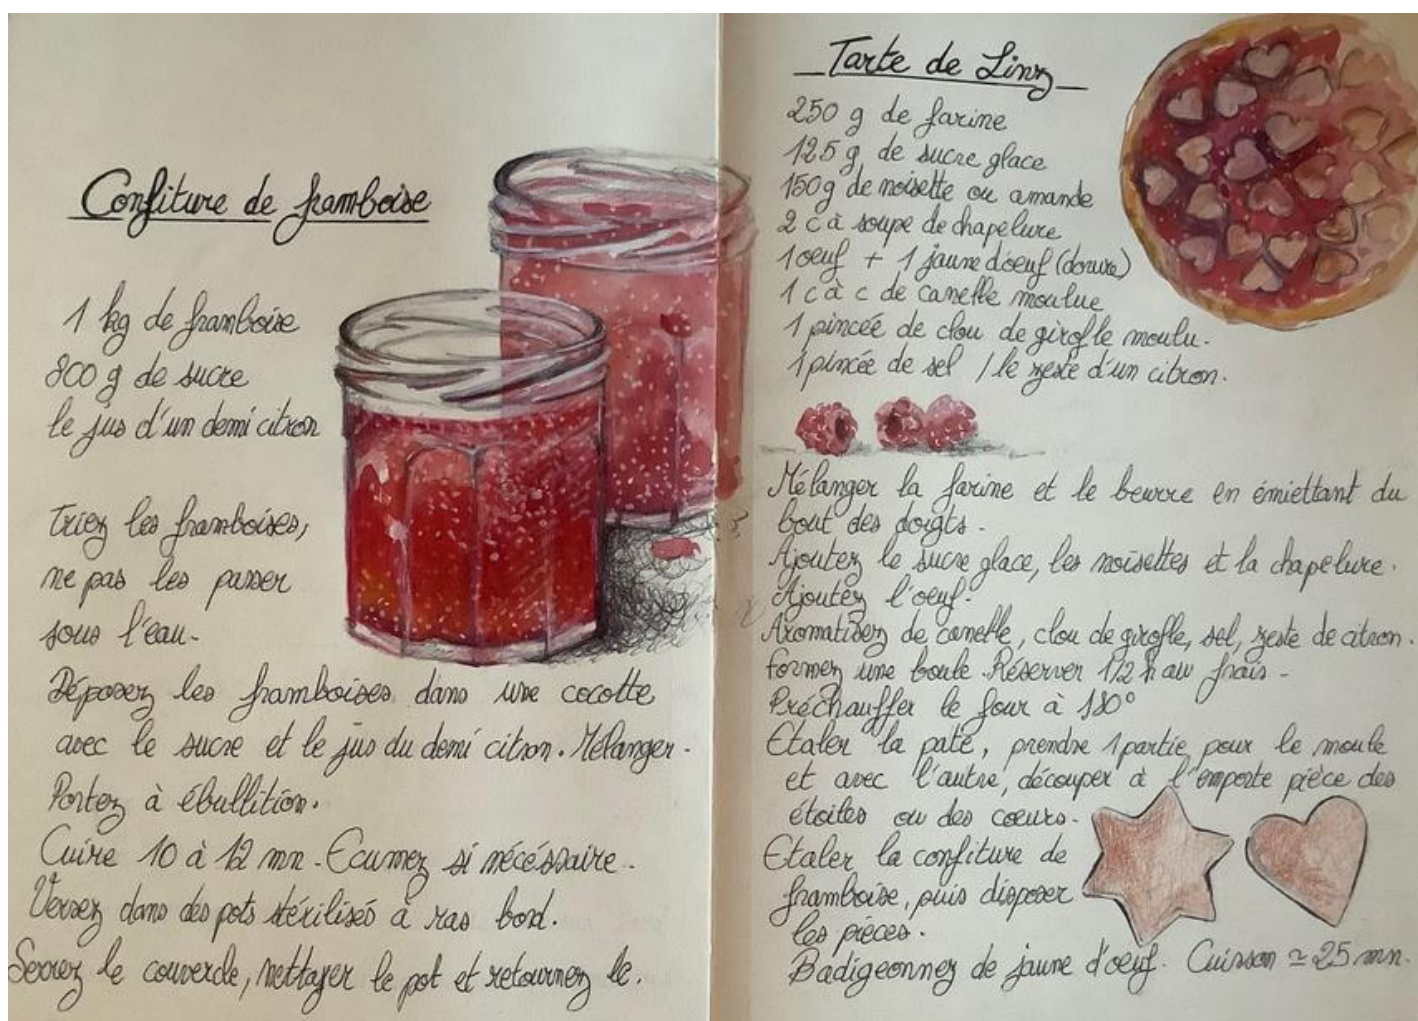 Confiture de framboise
1 kg de framboise
800 g de sucre
le jus d'un demi citron
Triez les framboises,
ne pas les passer
sous l'eau.
Déposez les framboises dans une cocotte
avec le sucre et le jus du demi citron. Mélanger.
Portez à ébullition.
Cuire 10 à 12 mn. Ecumez si nécéssaire.
Versez dans des pots stérilisés à ras bord.
Serrez le couvercle, nettoyer le pot et retournez le.
Tarte de Linz
250 g de farine
125 g de sucre glace
150g de noisette ou amande
2 c à soupe de chapelure
1 oeuf + 1 jaune d'oeuf (dorure)
1 c à c de canelle moulue
1 pincée de clou de girofle moulu.
1 pincée de sel / le zeste d'un citron.
Mélanger la farine et le beurre en émiettant du
bout des doigts.
Ajoutez le sucre glace, les noisettes et la chapelure.
Ajoutez l'oeuf.
Aromatisez de canelle, clou de girofle, sel, zeste de citron.
Formez une boule. Réserver 1/2 h au frais.
Préchauffer le four à 180°
Etaler la pate, prendre 1 partie pour le moule
et avec l'autre, découper à l'emporte pièce des
étoiles ou des coeurs.
Etaler la confiture de
framboise, puis disposer
les pièces.
Badigeonnez de jaune d'oeuf. Cuisson ≃ 25 mn.